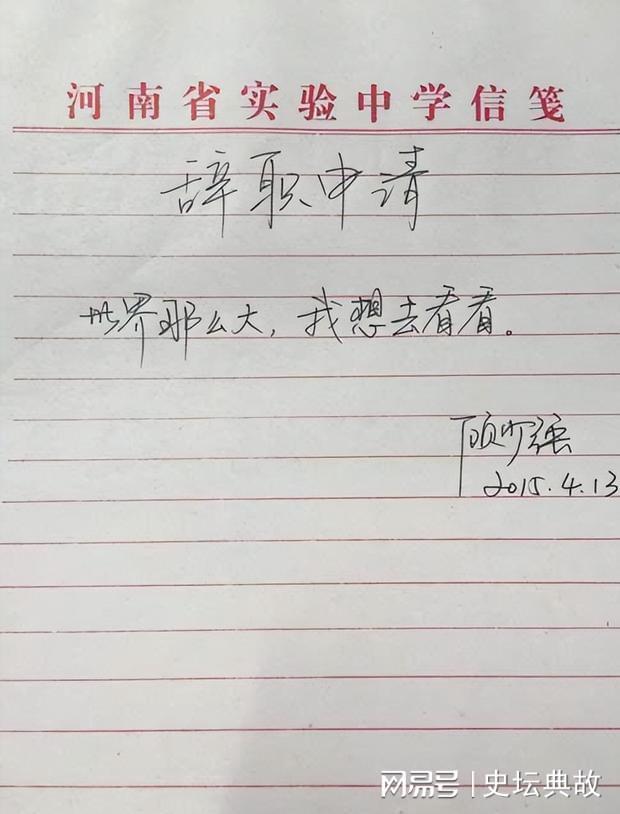 河南省实验中学信笺
辞职申请
世界那么大，我想去看看。
顾少强
2015.4.13
网易号 | 史坛典故